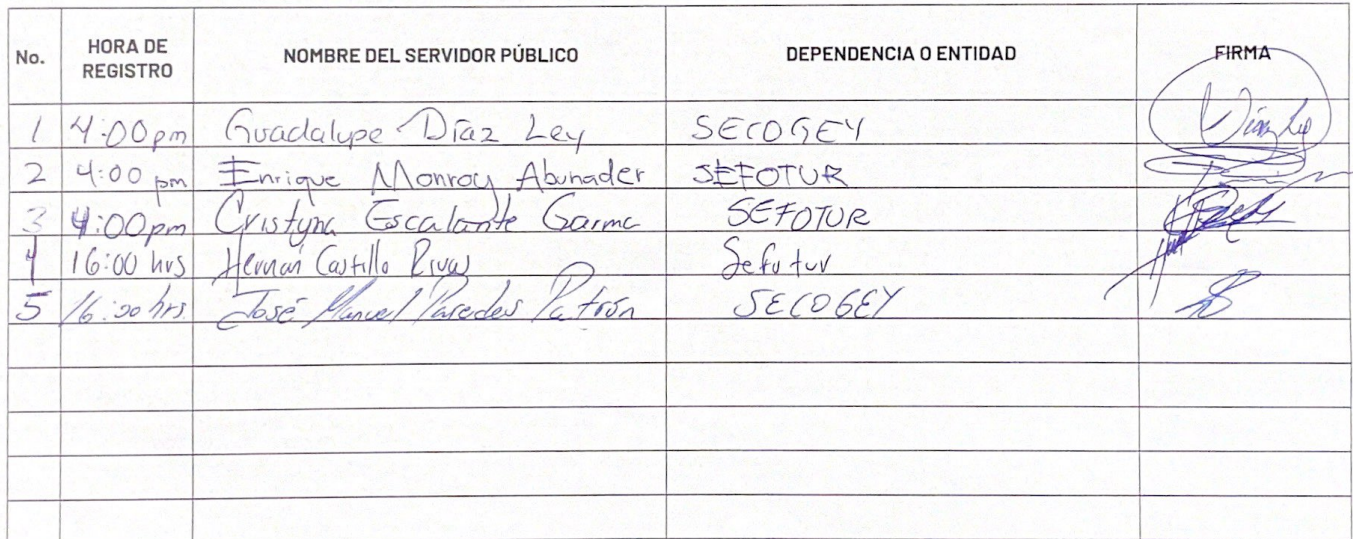 No. HORA DE REGISTRO NOMBRE DEL SERVIDOR PÚBLICO DEPENDENCIA O ENTIDAD FIRMA
1 4:00 pm Guadalupe Díaz Ley SECOGEY Díaz Ley
2 4:00 pm Enrique Monroy Abunader SEFOTUR
3 4:00 pm Cristyna Escalante Garma SEFOTUR
4 16:00 hrs Hernán Castillo Rivas Sefotur
5 16:00 hrs. José Manuel Paredes Patrón SECOGEY